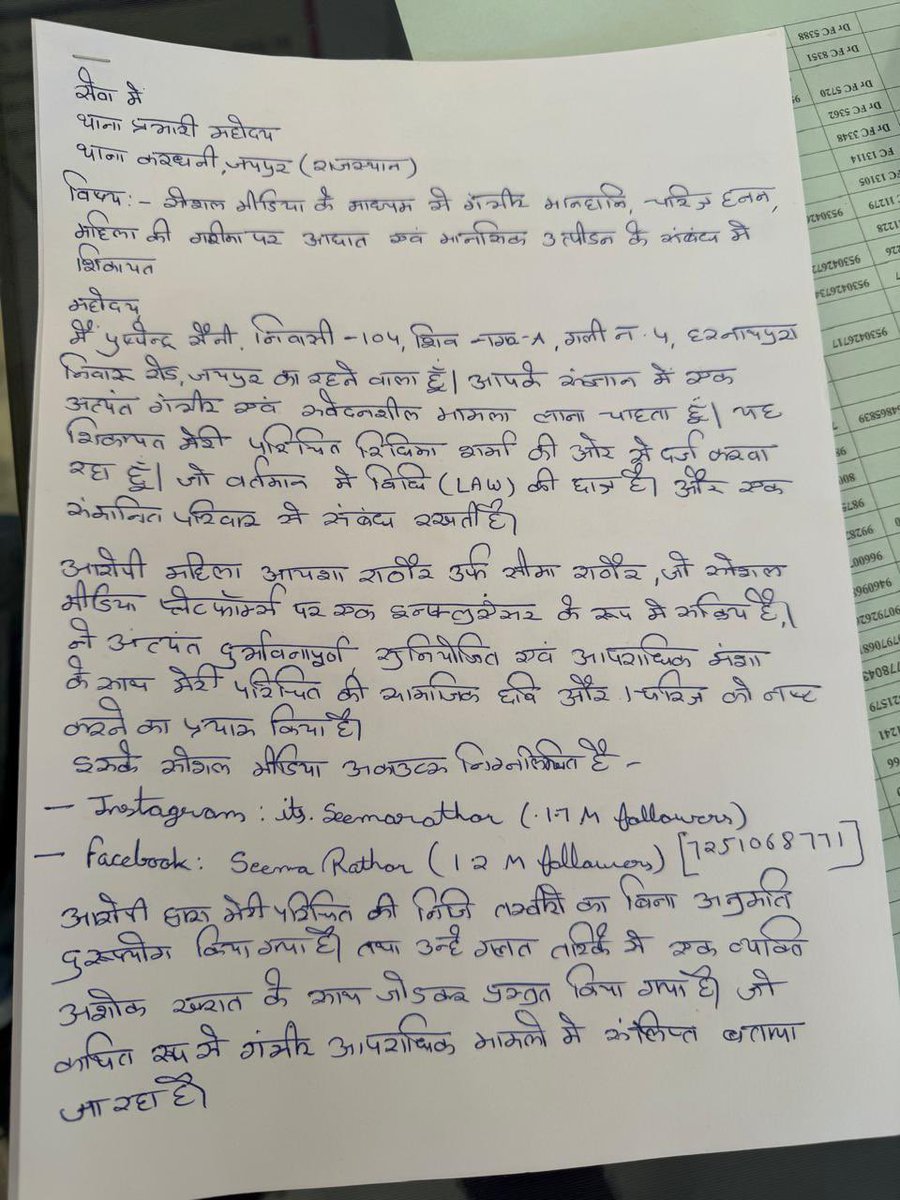 सेवा में
थाना प्रभारी महोदय
थाना करधनी, जयपुर (राजस्थान)
विषय:- सोशल मीडिया के माध्यम से गंभीर मानहानि, चरित्र हनन,
महिला की गरीमा पर आघात एवं मानसिक उत्पीडन के संबंध में
शिकायत
महोदय,
मैं पुष्पेन्द्र सैनी, निवासी -104, शिव नगर-A, गली न. 4, हरनाथपुरा
निवारू रोड, जयपुर का रहने वाला हूँ। आपके संज्ञान में एक
अत्यंत गंभीर एवं संवेदनशील मामला लाना चाहता हूँ। यह
शिकायत मेरी परिचित रिधिमा शर्मा की ओर से दर्ज करवा
रहा हूँ। जो वर्तमान में विधि (LAW) की छात्र है। और एक
संमानित परिवार से संबंध रखती है।
आरोपी महिला आयशा राठौर उर्फ सीमा राठौर, जो सोशल
मीडिया प्लेटफॉर्म्स पर एक इन्फ्लुएंसर के रूप में सक्रिय है,
ने अत्यंत दुर्भावनापूर्ण, सुनियोजित एवं आपराधिक मंशा
के साथ मेरी परिचित की सामाजिक छवि और चरित्र को नष्ट
करने का प्रयास किया है।
इसके सोशल मीडिया अकाउटस निम्नलिखित है -
- Instagram: its.Seemarathor (1.7 M followers)
- Facebook: Seema Rathor (1.2 M followers) [7251068771]
आरोपी द्वारा मेरी परिचित की निजि तस्वीरों का बिना अनुमति
दुरूपयोग किया गया है। तथा उन्हे गलत तरिके से एक व्यक्ति
अशोक खरात के साथ जोडकर प्रस्तुत किया गया है। जो
कथित रूप से गंभीर आपराधिक मामलो में संलिप्त बताया
जा रहा है।
Dr FC 5388
Dr FC 8351
Dr FC 5720
Dr FC 5362
Dr FC 3348
FC 13114
FC 13105